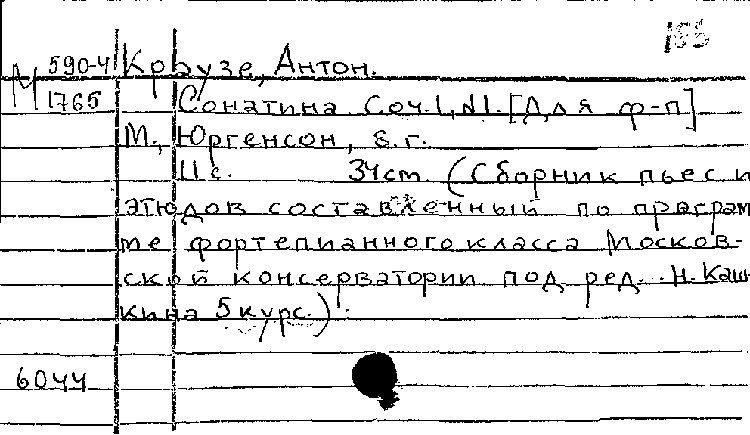 155
М 590-4 Краузе, Антон.
1765 Сонатина Соч. 1, №1. [Для ф-п]
М., Юргенсон, б.г.
11 с. 34 cm. (Сборник пьес и
этюдов составленный по програм
ме фортепианного класса Москов-
ской консерватории под ред. Н. Каш
кина 5 курс.)
6044